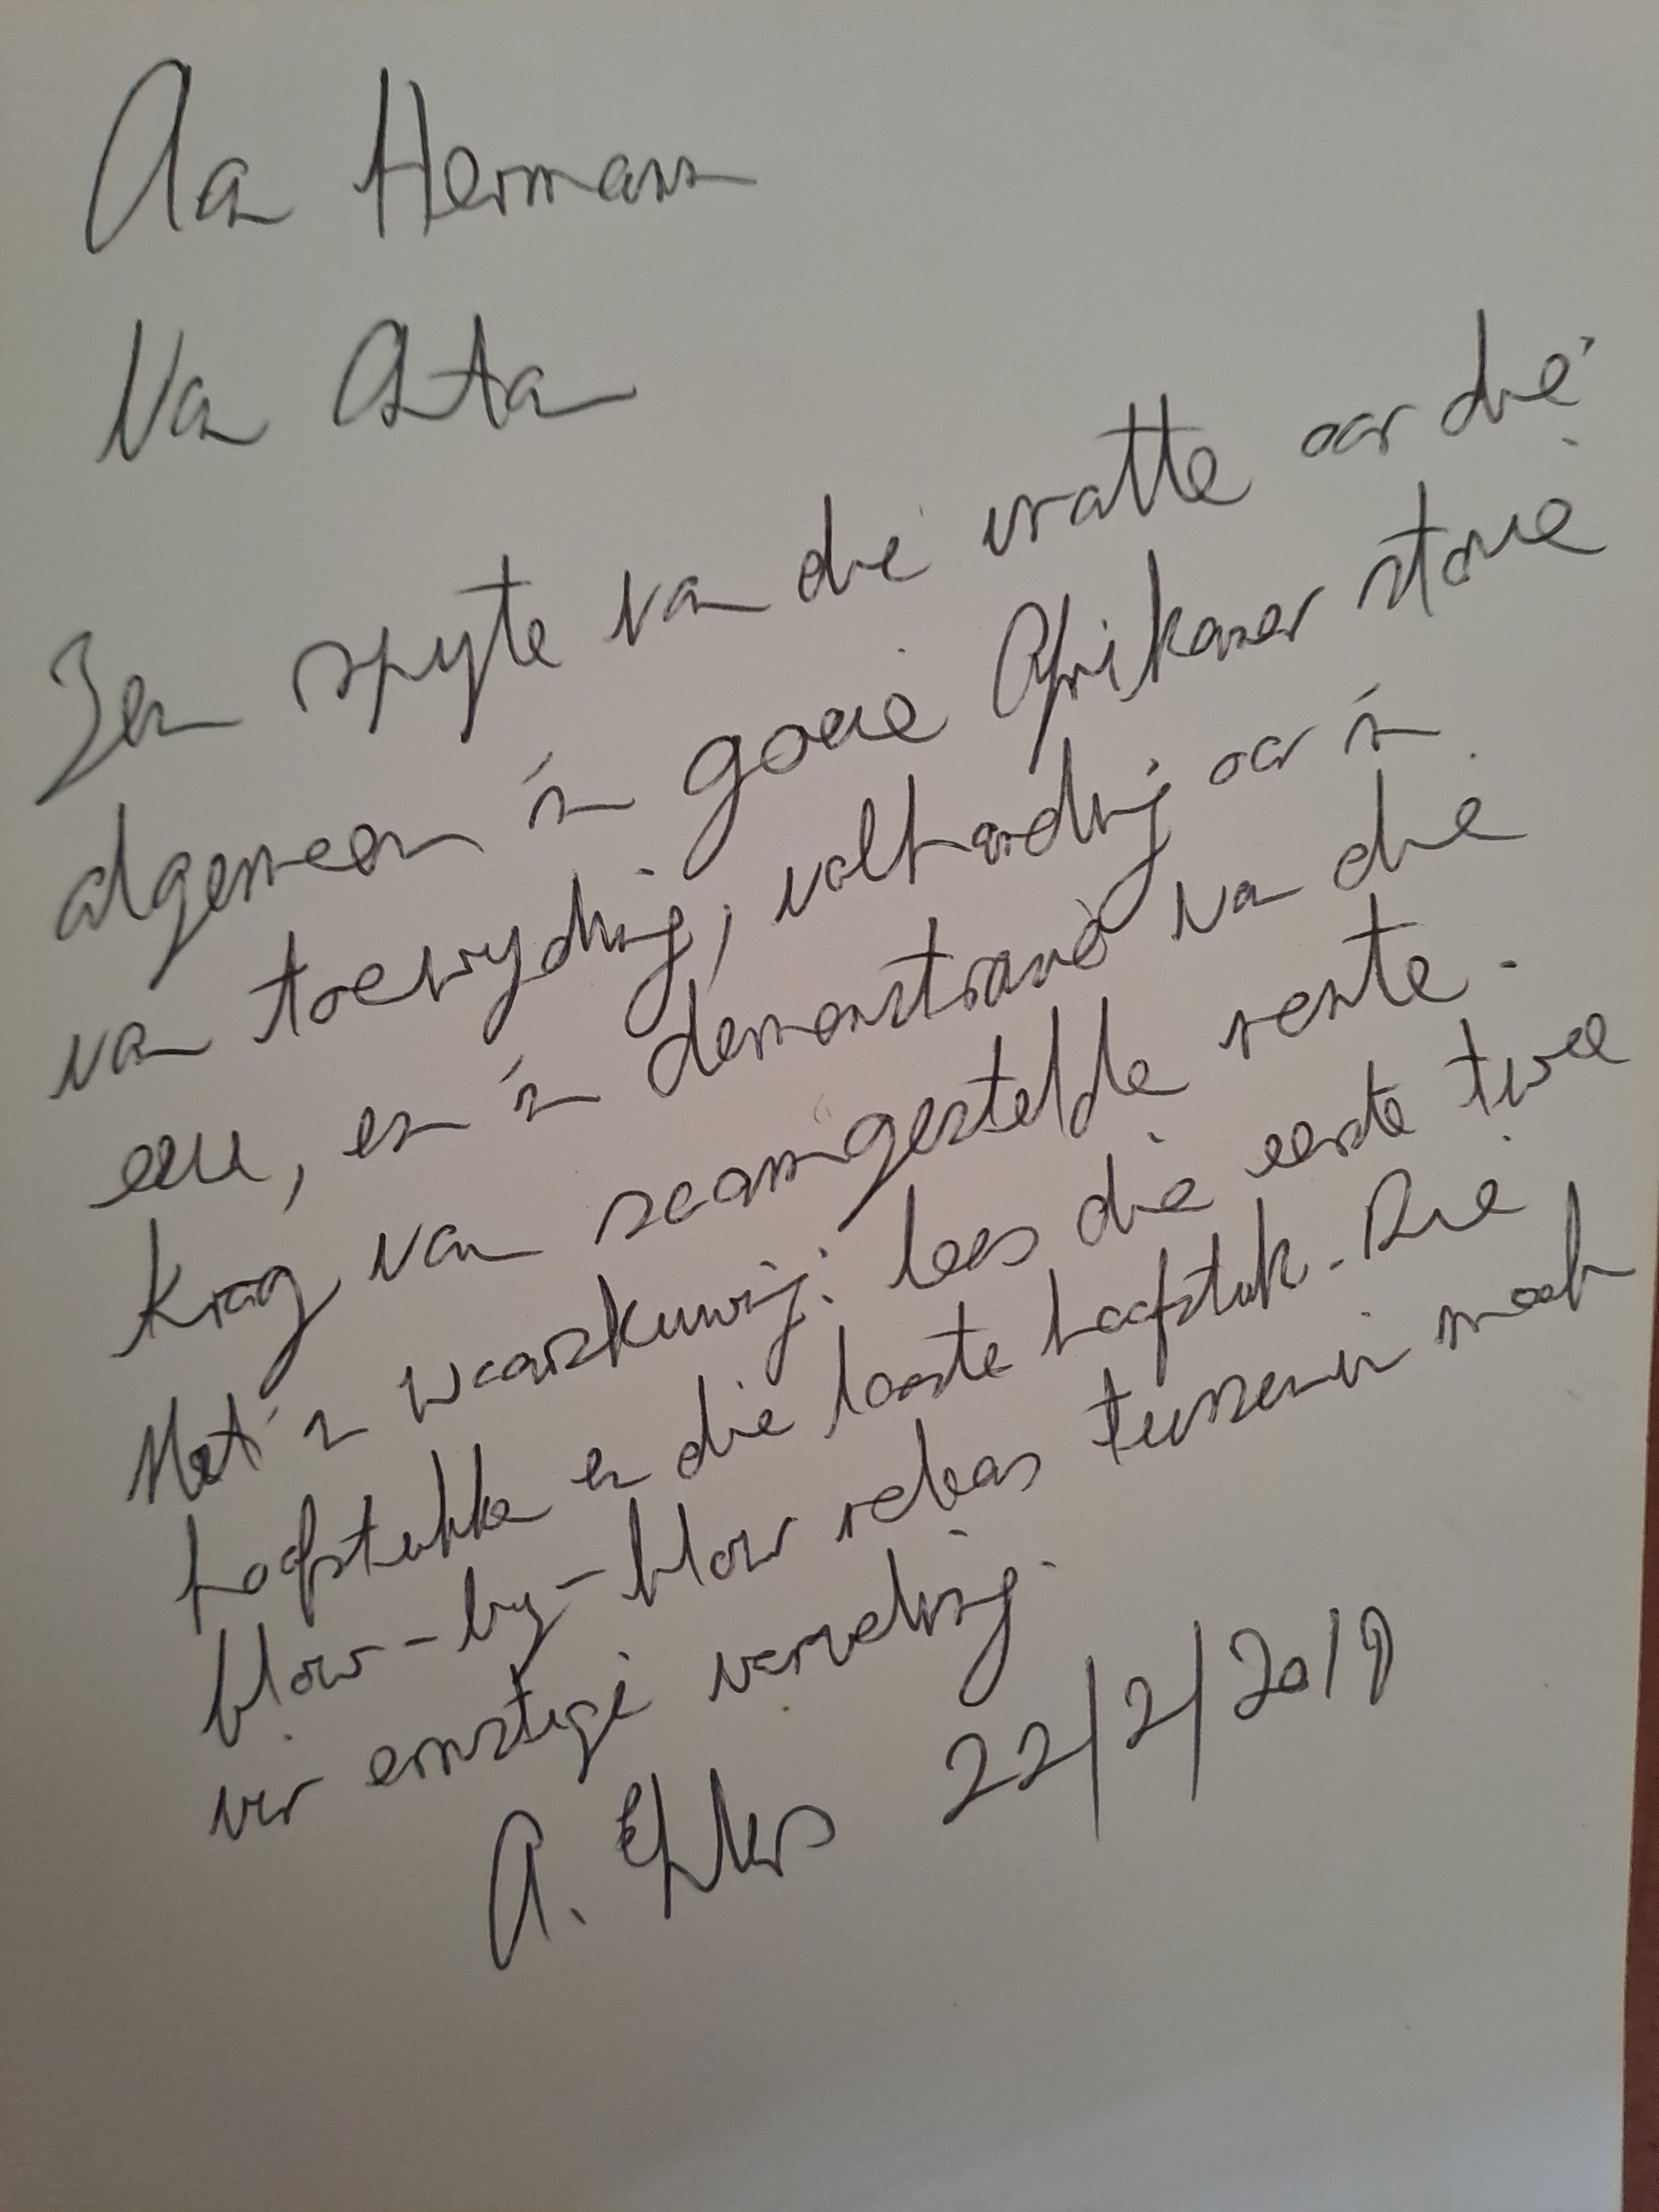 Aan Hermann
Van Anton
Ten spyte van die vratte oor die
algemeen 'n goeie Afrikaner storie
van toewyding, volharding oor 'n
eeu, en 'n demonstrasie van die
krag van saamgestelde rente.
Met 'n waarskuwing: lees die eerste twee
hoofstukke en die laaste hoofstuk. Die
blow-by-blow relaas tussenin maak
vir ernstige verveling.
A. 22/2/2019